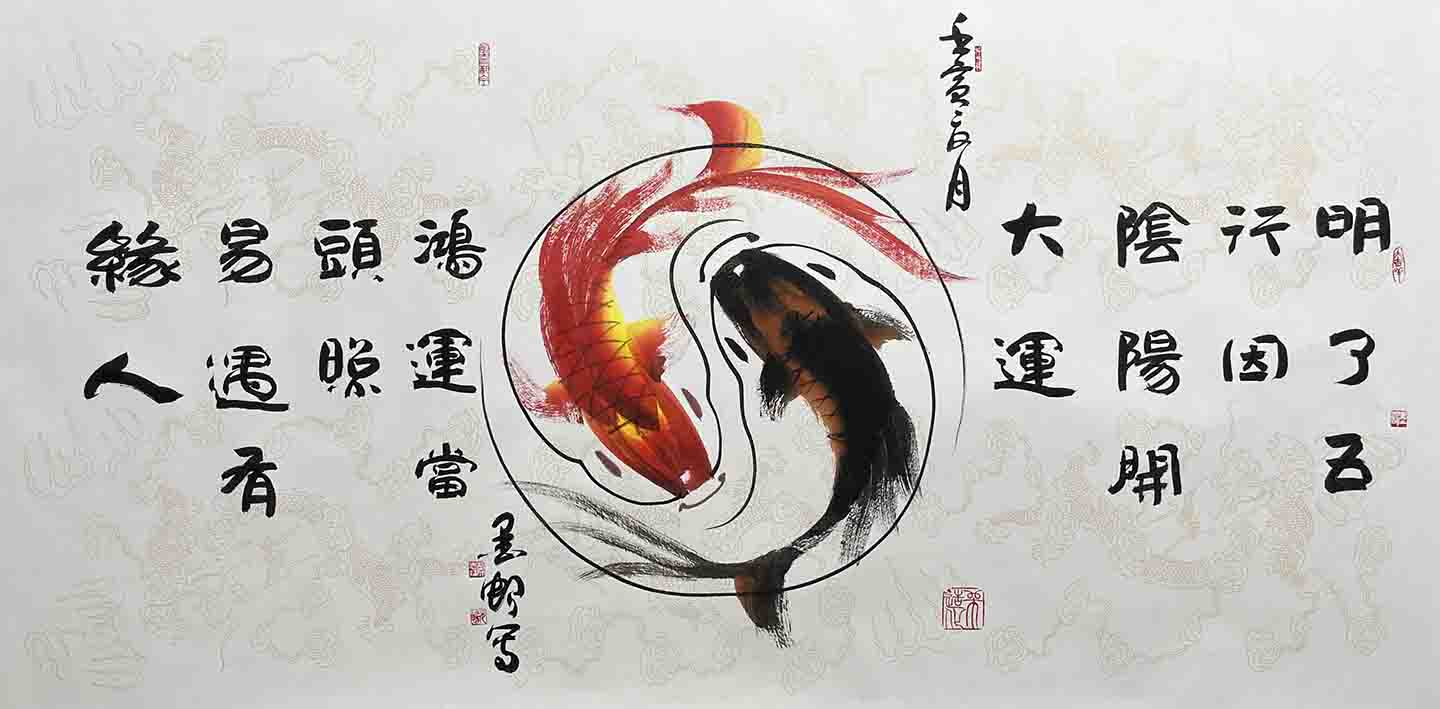 明了五
行因
陰陽開
大運
壬寅夏月
鴻運當
頭照
易遇有
緣人
写